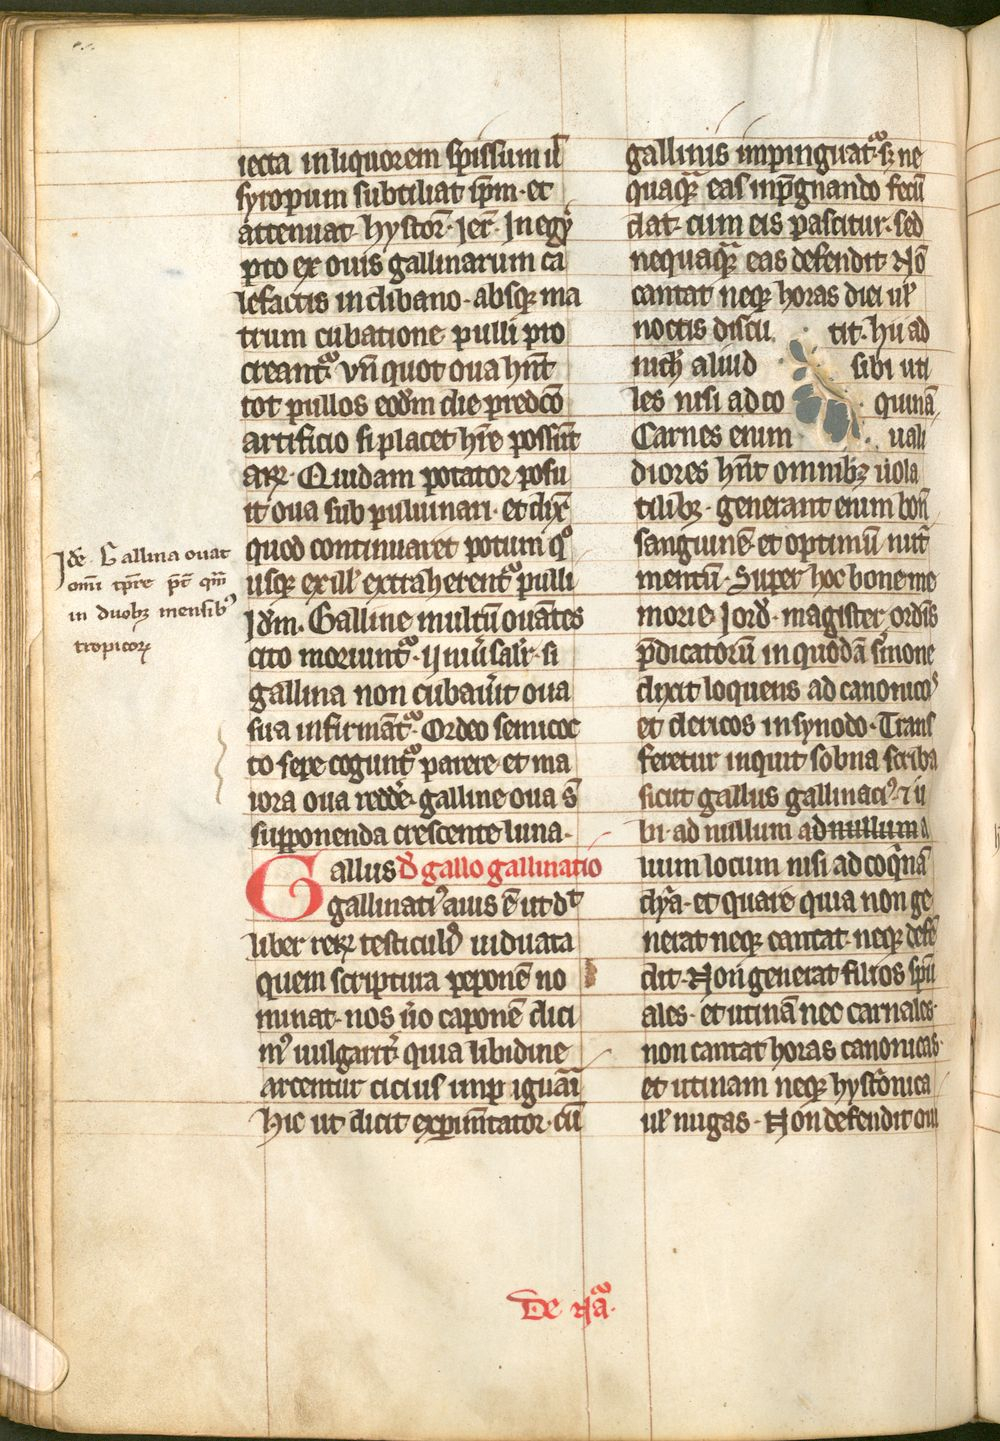 iecta in liquorem spissum ul̄
syropum subtiliat ip̄m · et
attenuat · hystor̄ · ier̄ · In egy
pto ex ouis gallinarum ca
lefactis in clibano · absqꝫ ma
trum cubatione pulli pro
creant᷑ vn̄ quot oua hn̄t
tot pullos eod̄m die predc̄o
artificio si placet hr̄e possūt
arꝝ · Quidam potator posu
it oua sub puluinari · et dix̄
quod continuaret potum qͦ
usqꝫ ex ill̓ extraherent᷑ pulli
Id̄m · Galline multū ouātes
cito moriunt᷑ · si
gallina non cubau̓it oua
sua infirmāt᷑ · Ordeo semicoc
to sepe cogunt᷑ parere · et ma
iora oua redd̓e · galline oua s̄
supponenda crescente luna ·
Gallus D̓ gallo gallinatio
gallinati᷒ auis ē ut dͭ
liber reꝝ testiculꝭ uiduata
quem scriptura peponē no
minat · nos u̓o caponē dici
m᷒ uulgarit̓ quia libidine
arcentur cicius
Hic ut dicit exp̄im̄tator · cū
gallinis impinguat᷑ · sꝫ ne
quaqᷓ eas inp̄gnando fecū
dat · cum eis pascitur · sed
nequaqᷓ eas defendit Nō
cantat neqꝫ horas diei ul̓
noctis discu tit · hii ad
nich̓ aliud sibi uti
les nisi ad co quinā
Carnes enim uali
diores hn̄t omnibꝫ uola
tilibꝫ · generant enim bon̄
sanguinē · et optimū nut̓
mentū · Super hoc bone me
morie · Iord̓ · magister ordīs
p̄dicatorū in quodā s̓mone
dixit loquens ad canonico᷒
et clericos in synodo · Trans
feretur inquit sobna scriba
sicut gallus gallinaci᷒ · ⁊ ii
bi · ad nullum ad nullum a
lium locum nisi ad coq̓nā
et quare quia non ge
nerat neqꝫ cantat · neqꝫ defē
dit · Non generat filios spū
ales · et utinā nec carnales ·
non cantat horas canonicas ·
et utinam neqꝫ hyst̓onica
ul̓ nugas · Non defendit oui
Idē · Gallina ouat
omī tp̄re p̄t qm̄
in duobꝫ mensib᷒
tropicoꝝ
De nᷓa ·